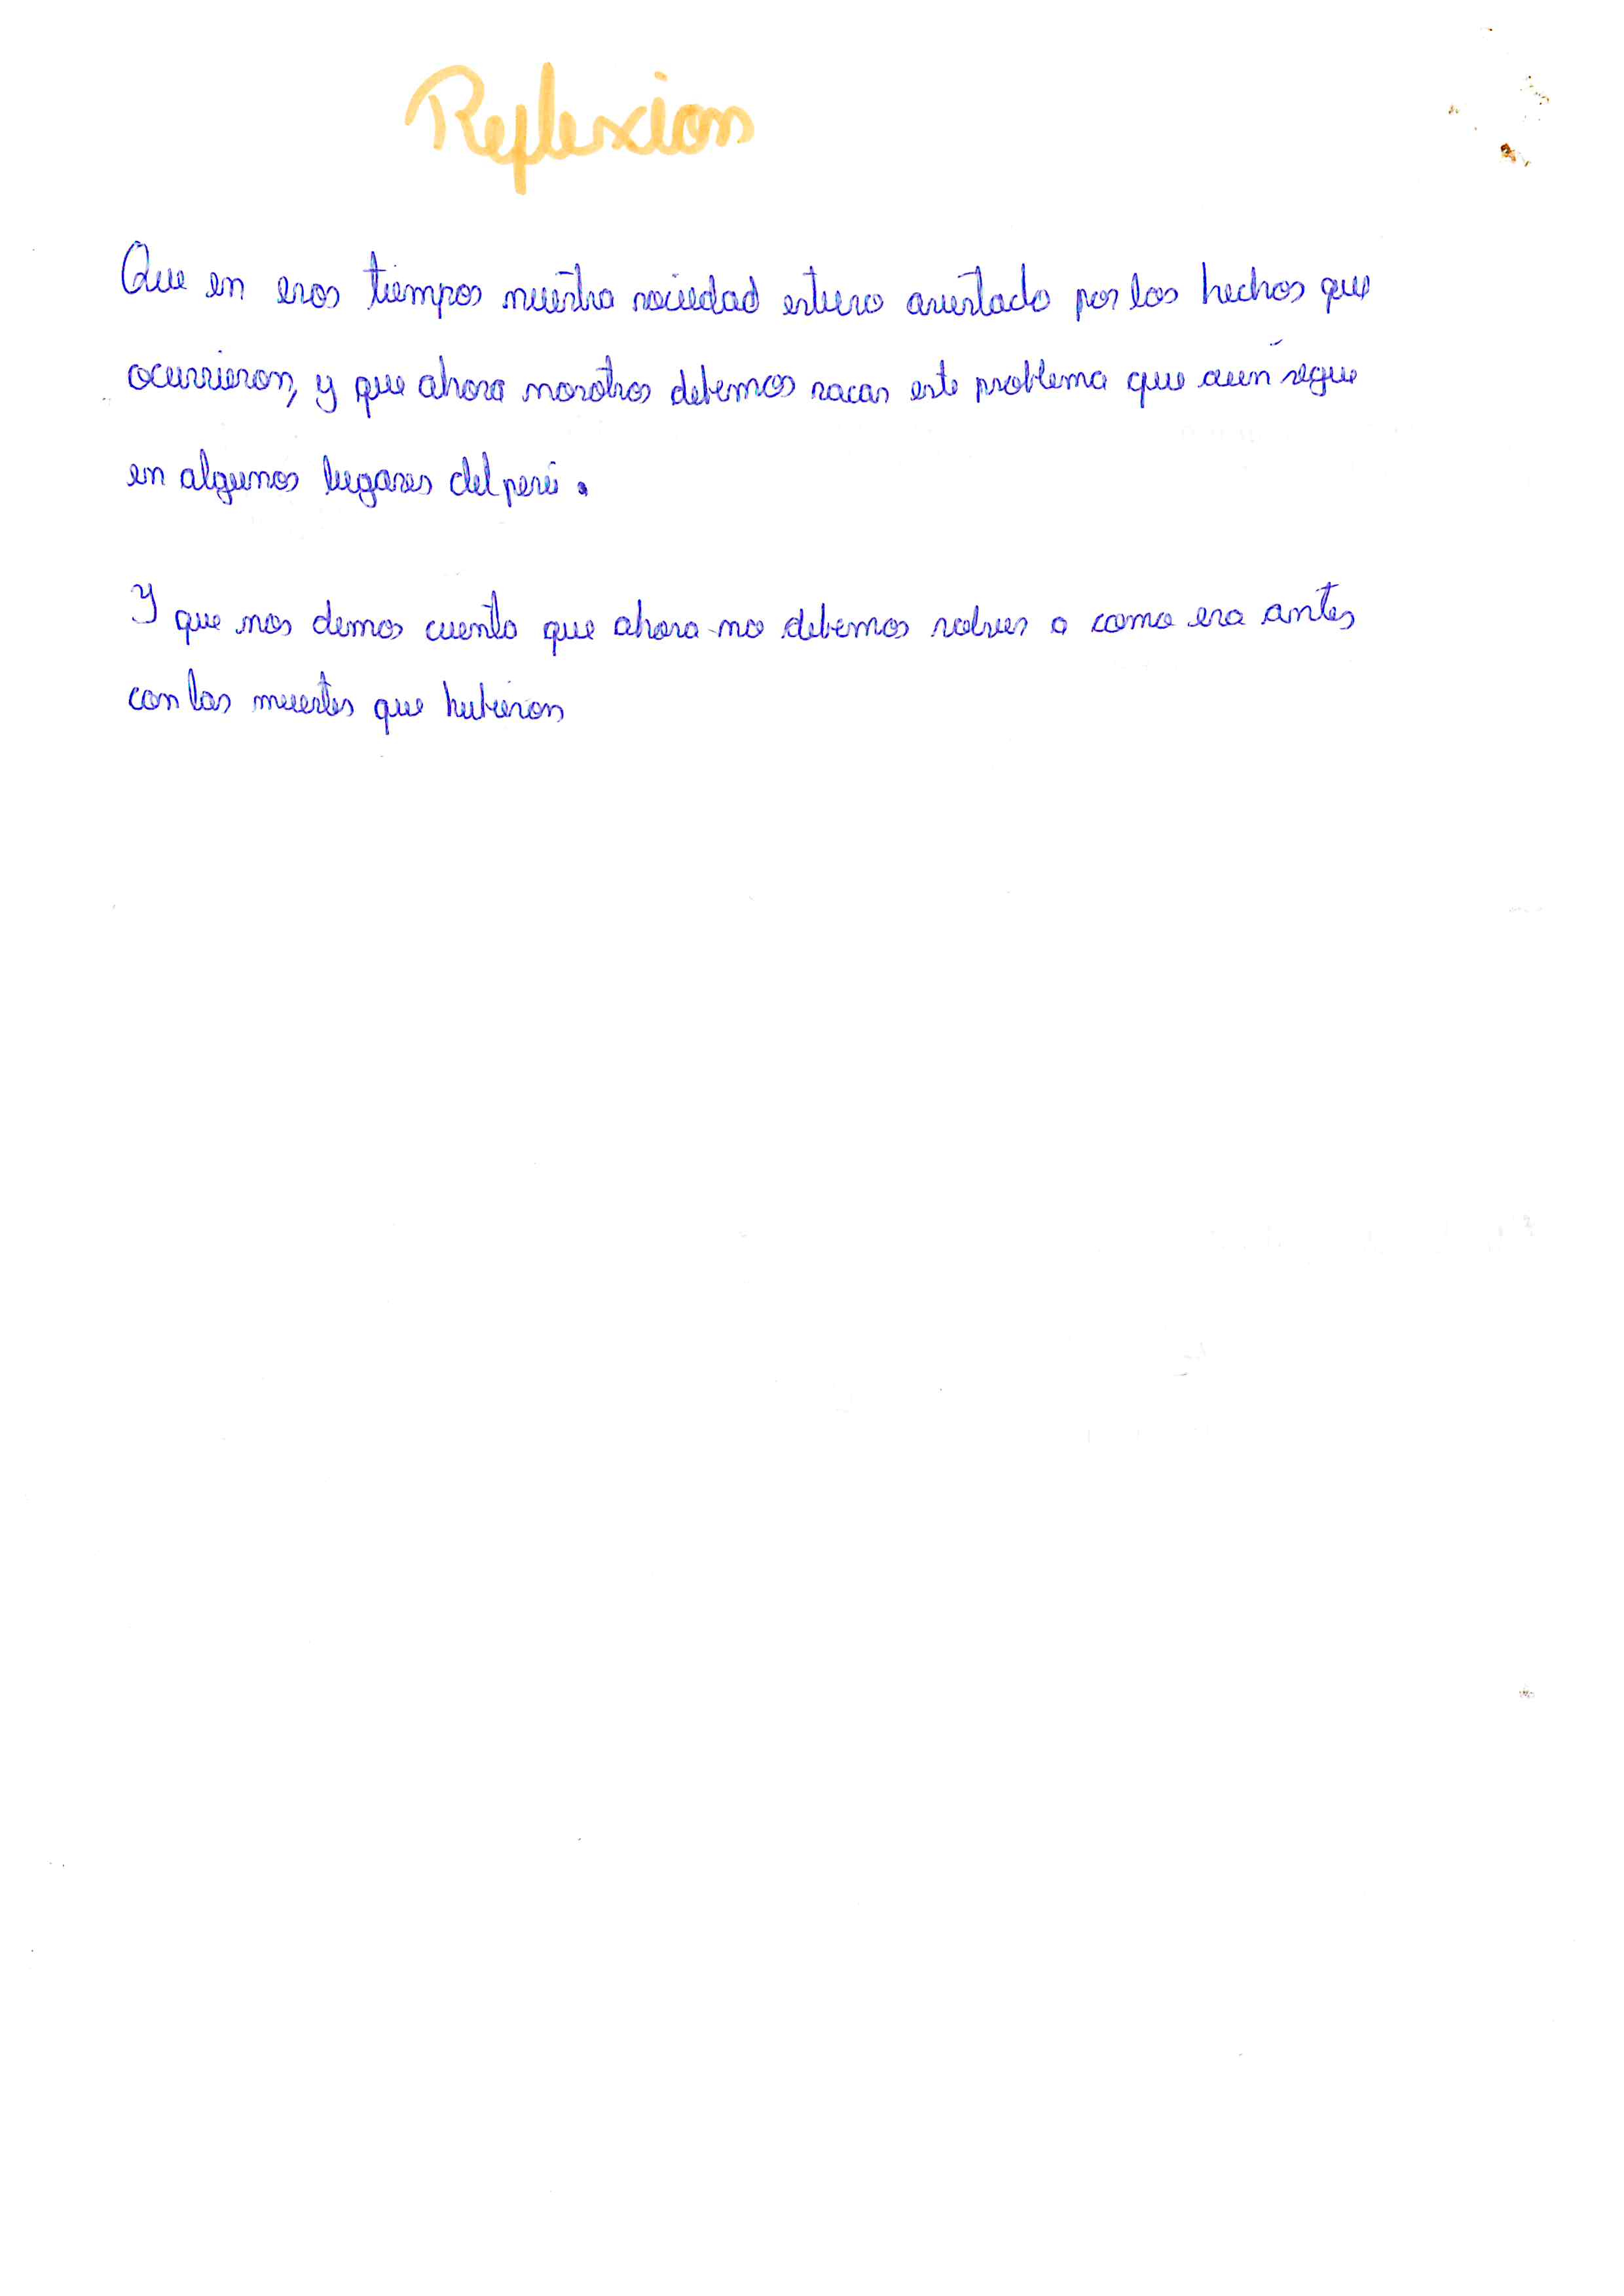 Reflexion
Que en esos tiempos nuestra sociedad estuvo asustado por los hechos que
ocurrieron, y que ahora nosotros debemos sacar este problema que aún segue
en algunos lugares del perú.
Y que nos demos cuenta que ahora no debemos volver a como era antes
con las muertes que hubieron